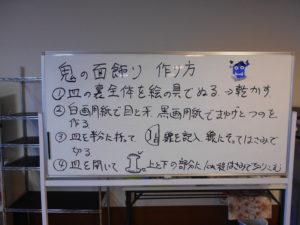 鬼の面飾り 作り方
①皿の裏全体を絵の具でぬる→乾かす
②白画用紙で目と牙 黒画用紙でまゆとつのを
作る
③皿を半分に折って 線を記入 線にそってはさみで
切る
④皿を開いて 上と下の部分に はさみで切りこむ